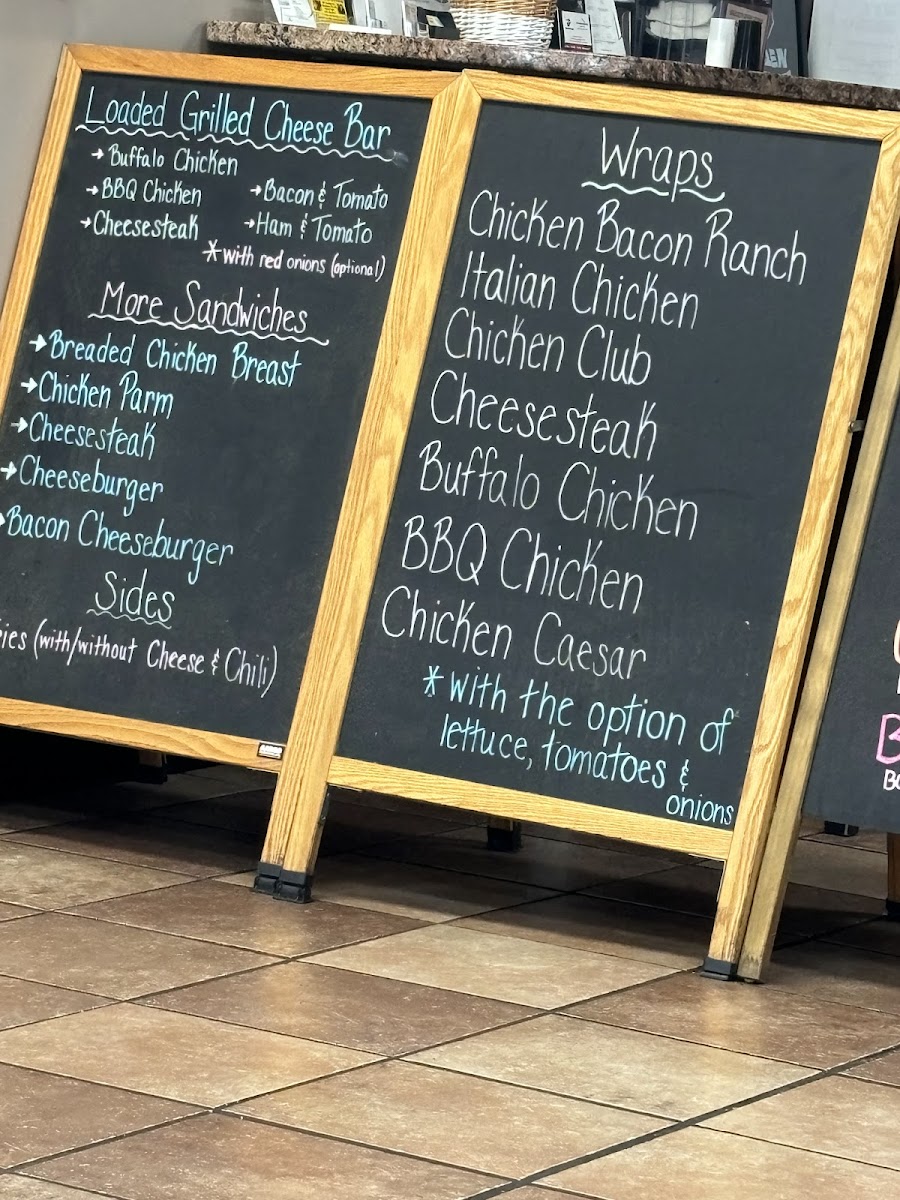 Loaded Grilled Cheese Bar
→ Buffalo Chicken
→ BBQ Chicken
→ Cheesesteak
→ Bacon & Tomato
→ Ham & Tomato
* with red onions (optional)
More Sandwiches
→ Breaded Chicken Breast
→ Chicken Parm
→ Cheesesteak
→ Cheeseburger
→ Bacon Cheeseburger
Sides
(with/without Cheese & Chili)
Wraps
Chicken Bacon Ranch
Italian Chicken
Chicken Club
Cheesesteak
Buffalo Chicken
BBQ Chicken
Chicken Caesar
* with the option of
lettuce, tomatoes &
onions